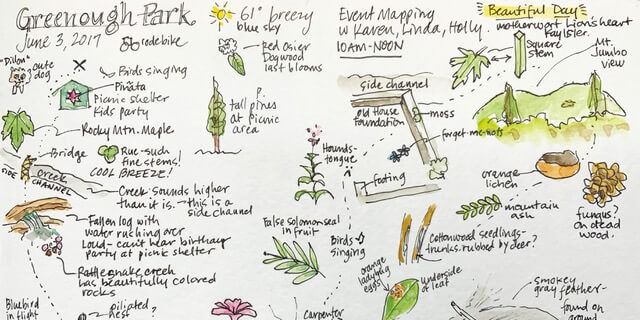 Greenough Park
June 3, 2017
rode bike
61° breezy
blue sky
"Dillon"
cute
dog
Red Osier
Dogwood
last blooms
Birds singing
Piñata
Picnic shelter
Kids party
Rocky Mtn. Maple
tall pines
at picnic
area
Bridge
Rue-such
fine stems!
COOL BREEZE!
SIDE
CREEK
CHANNEL
Creek sounds higher
than it is. → this is a
side channel
Fallen log with
water rushing over
Loud - can't hear birthday
party at picnic shelter
Rattlesnake creek
has beautifully colored
rocks
Bluebird
in flight
nest
Event Mapping
w Karen, Linda, Holly
10AM-NOON
side channel
old House
foundation
moss
forget-me-nots
footing
Hounds-
tongue
False solomon seal
in fruit
Birds
singing
Cottonwood seedlings-
trunks rubbed by deer?
orange
ladybug
eggs
underside
of leaf
Carpenter
Beautiful Day
motherwort Lion's heart
Square
stem
Mt.
Jumbo
view
orange
lichen
mountain
ash
fungus?
on dead
wood.
smokey
gray feather-
found on
ground